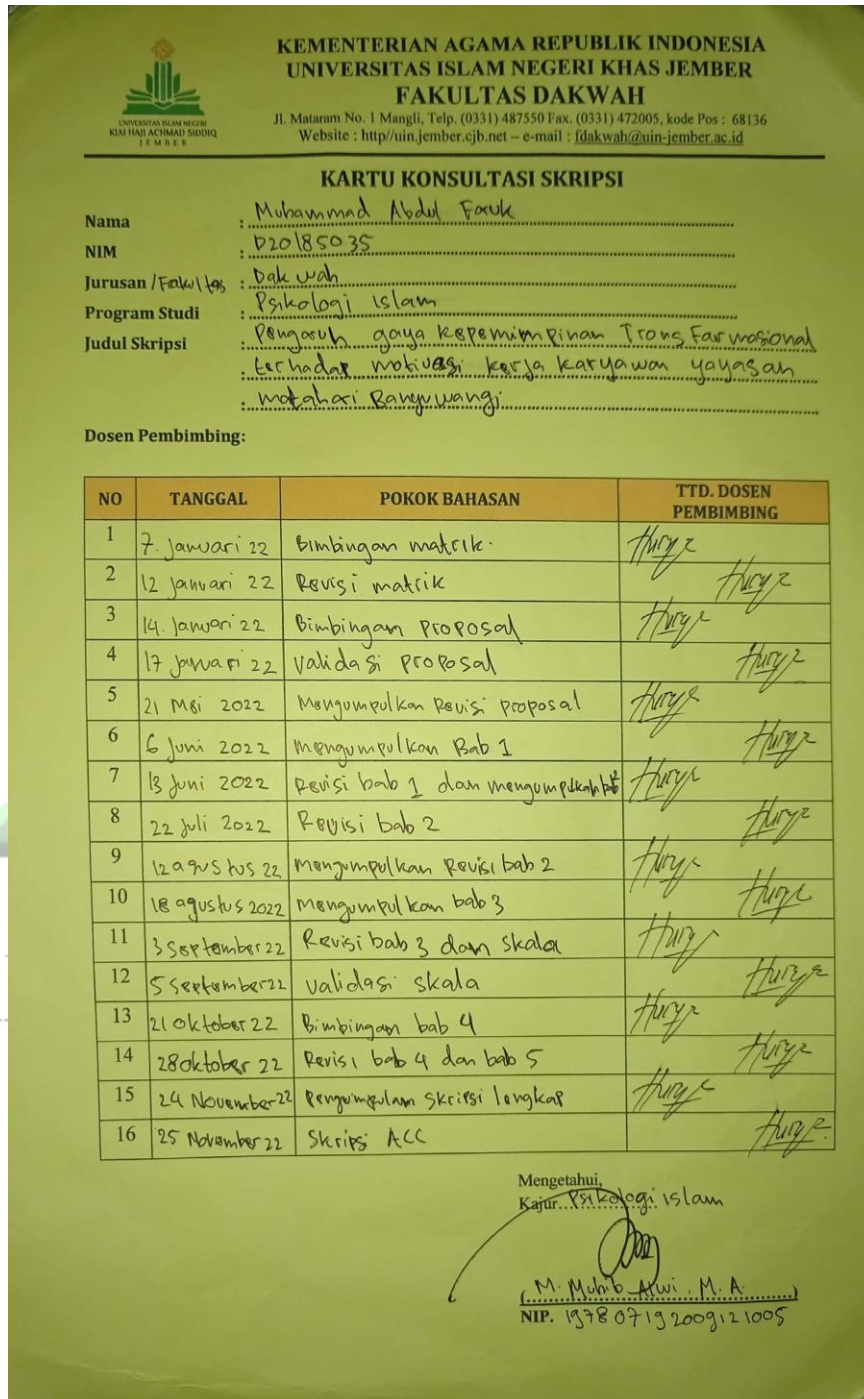 KEMENTERIAN AGAMA REPUBLIK INDONESIA
UNIVERSITAS ISLAM NEGERI KHAS JEMBER
FAKULTAS DAKWAH
Jl. Mataram No. 1 Mangli, Telp. (0331) 487550 Fax. (0331) 472005, kode Pos : 68136
Website : http//uin.jember.cjb.net – e-mail : fdakwah@uin-jember.ac.id
UNIVERSITAS ISLAM NEGERI
KIAI HAJI ACHMAD SIDDIQ
JEMBER
KARTU KONSULTASI SKRIPSI
Nama : Muhammad Abdul Faruk
NIM : D20185035
Jurusan / Fakultas : Dakwah
Program Studi : Psikologi Islam
Judul Skripsi : Pengaruh gaya kepemimpinan Transformasional
: terhadap motivasi kerja karyawan yayasan
: matahari Banyuwangi
Dosen Pembimbing:
NO TANGGAL POKOK BAHASAN TTD. DOSEN PEMBIMBING
1 7. Januari 22 Bimbingan matrik.
2 12 Januari 22 Revisi matrik
3 14. Januari 22 Bimbingan proposal
4 17 Januari 22 validasi proposal
5 21 Mei 2022 Mengumpulkan Revisi proposal
6 6 Juni 2022 mengumpulkan Bab 1
7 13 Juni 2022 Revisi bab 1 dan mengumpulkan bab 2
8 22 Juli 2022 Revisi bab 2
9 12 agustus 22 Mengumpulkan Revisi bab 2
10 18 agustus 2022 Mengumpulkan bab 3
11 3 September 22 Revisi bab 3 dan skala
12 5 September 22 validasi skala
13 21 oktober 22 Bimbingan bab 4
14 28 oktober 22 Revisi bab 4 dan bab 5
15 24 November 22 Pengumpulan skripsi lengkap
16 25 November 22 Skripsi ACC
Mengetahui,
Kajur Psikologi islam
( M. Muhib Alwi, M.A. )
NIP. 197807192009121005